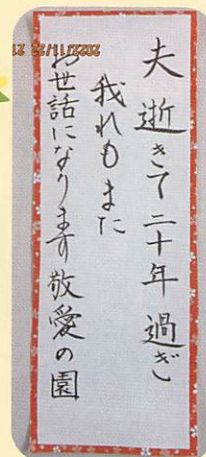 夫逝きて二十年過ぎし
我れもまた
お世話になります敬愛の園